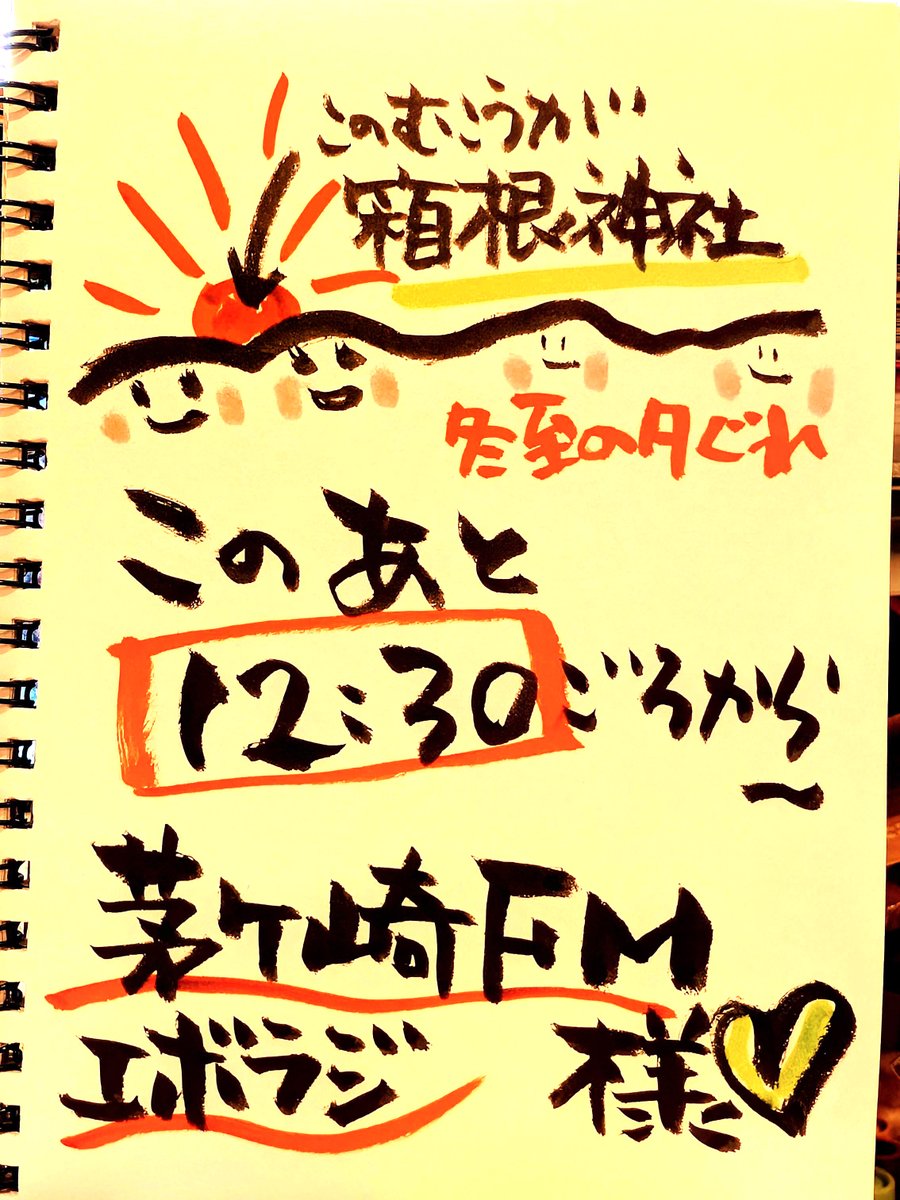 このむこうが
箱根神社
冬至の夕ぐれ
このあと
12:30ごろから〜
茅ヶ崎FM
エボラジ 様